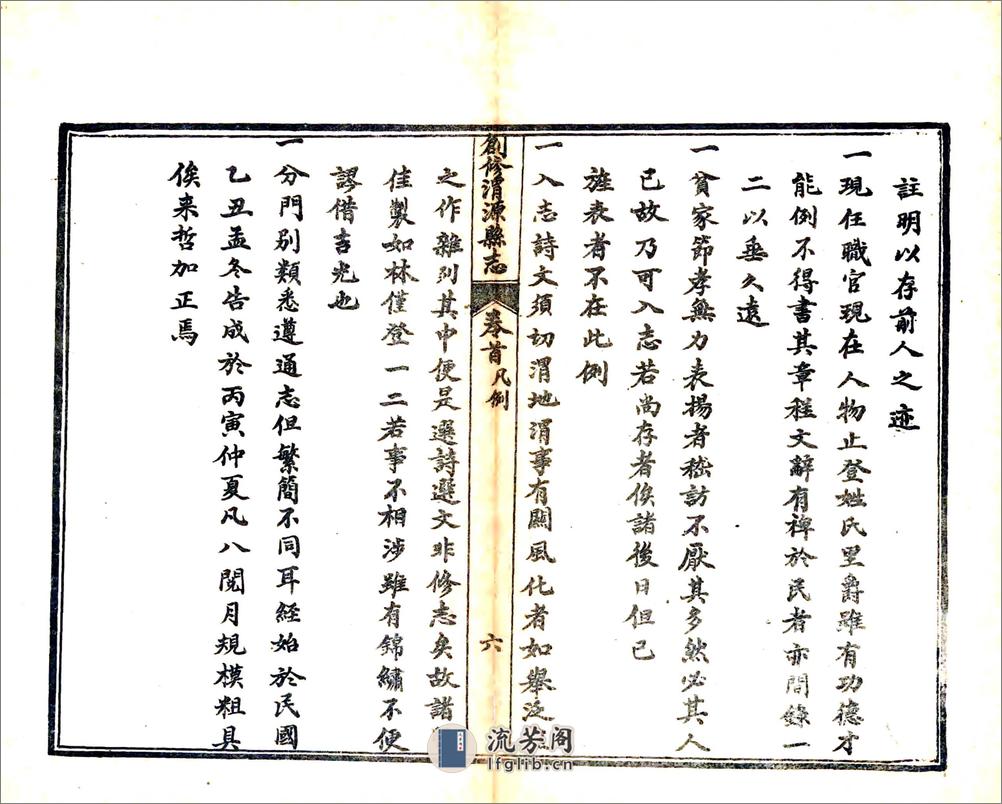 註明以存前人之迹
一現任職官現在人物止登姓氏里爵雖有功德才
能例不得書其章程文辭有裨於民者亦間錄一
二以垂久遠
一貧家節孝無力表揚者嵇訪不厭其多然必其人
已故乃可入志若尚存者俟諸後日但已
旌表者不在此例
一入志詩文須切渭地渭事有關風化者如舉泛
創修渭源縣志
卷首 凡例
六
之作雜列其中便是選詩選文非修志矣故諸
佳製如林僅登一二若事不相涉雖有錦繡不便
謬借吉光也
一分門別類悉遵通志但繁簡不同耳經始於民國
乙丑孟冬告成於丙寅仲夏凡八閱月規模粗具
俟来哲加正焉
流芳阁
lfglib.cn